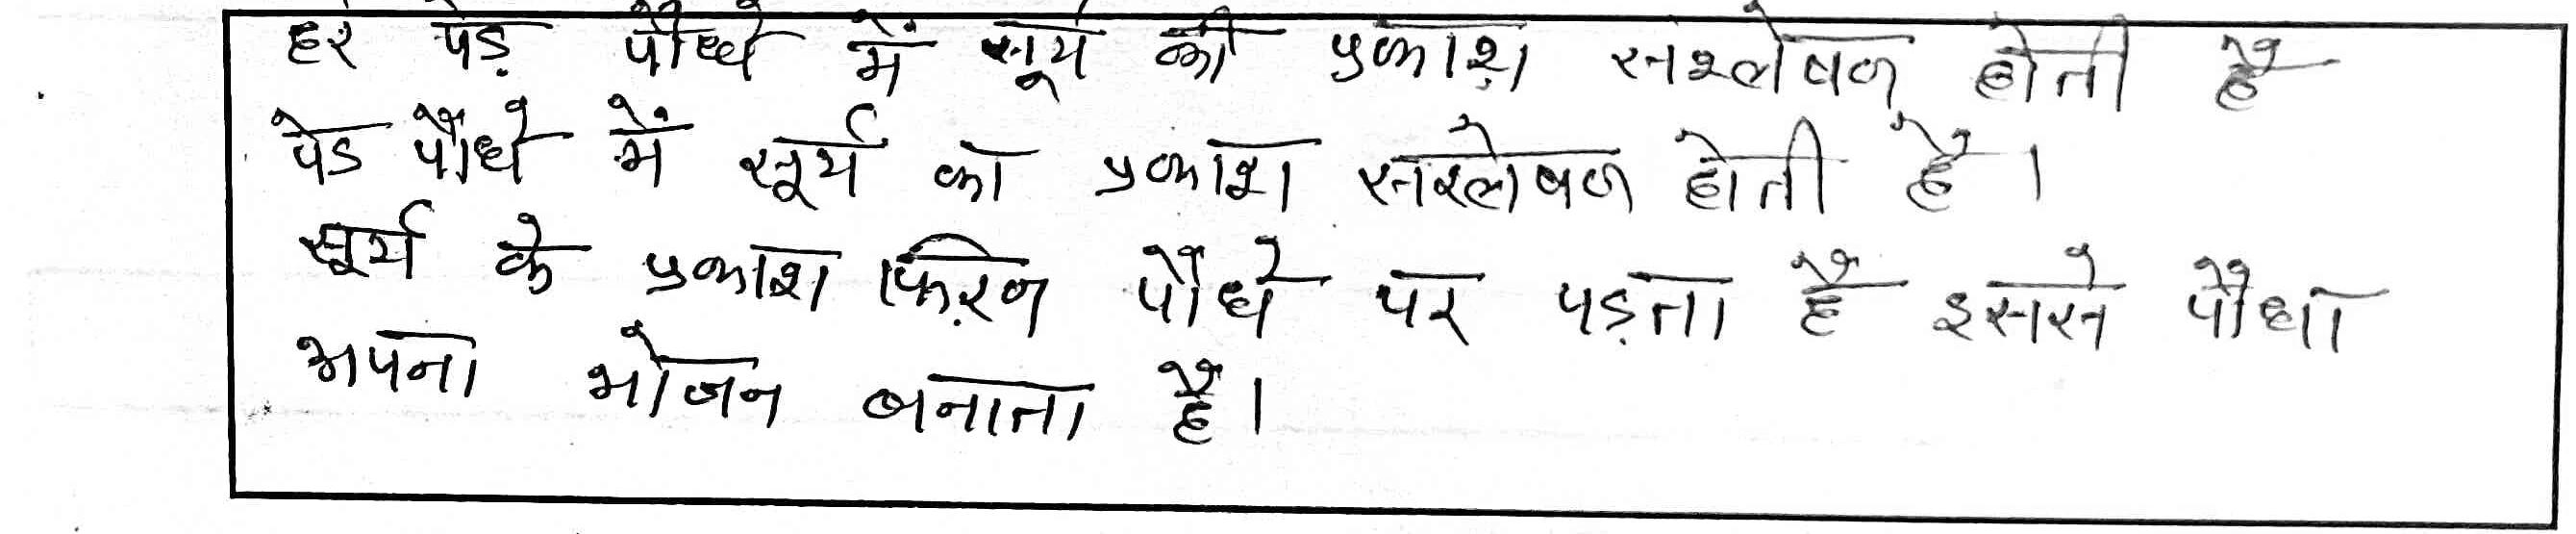 हरे पेड़ पौधे में सूर्य की प्रकाश सश्लेषण होती है
पेड पौधे में सूर्य का प्रकाश सश्लेषण होती है ।
सूर्य के प्रकाश किरण पौधे पर पड़ता है इससे पौधा
अपना भोजन बनाता है ।